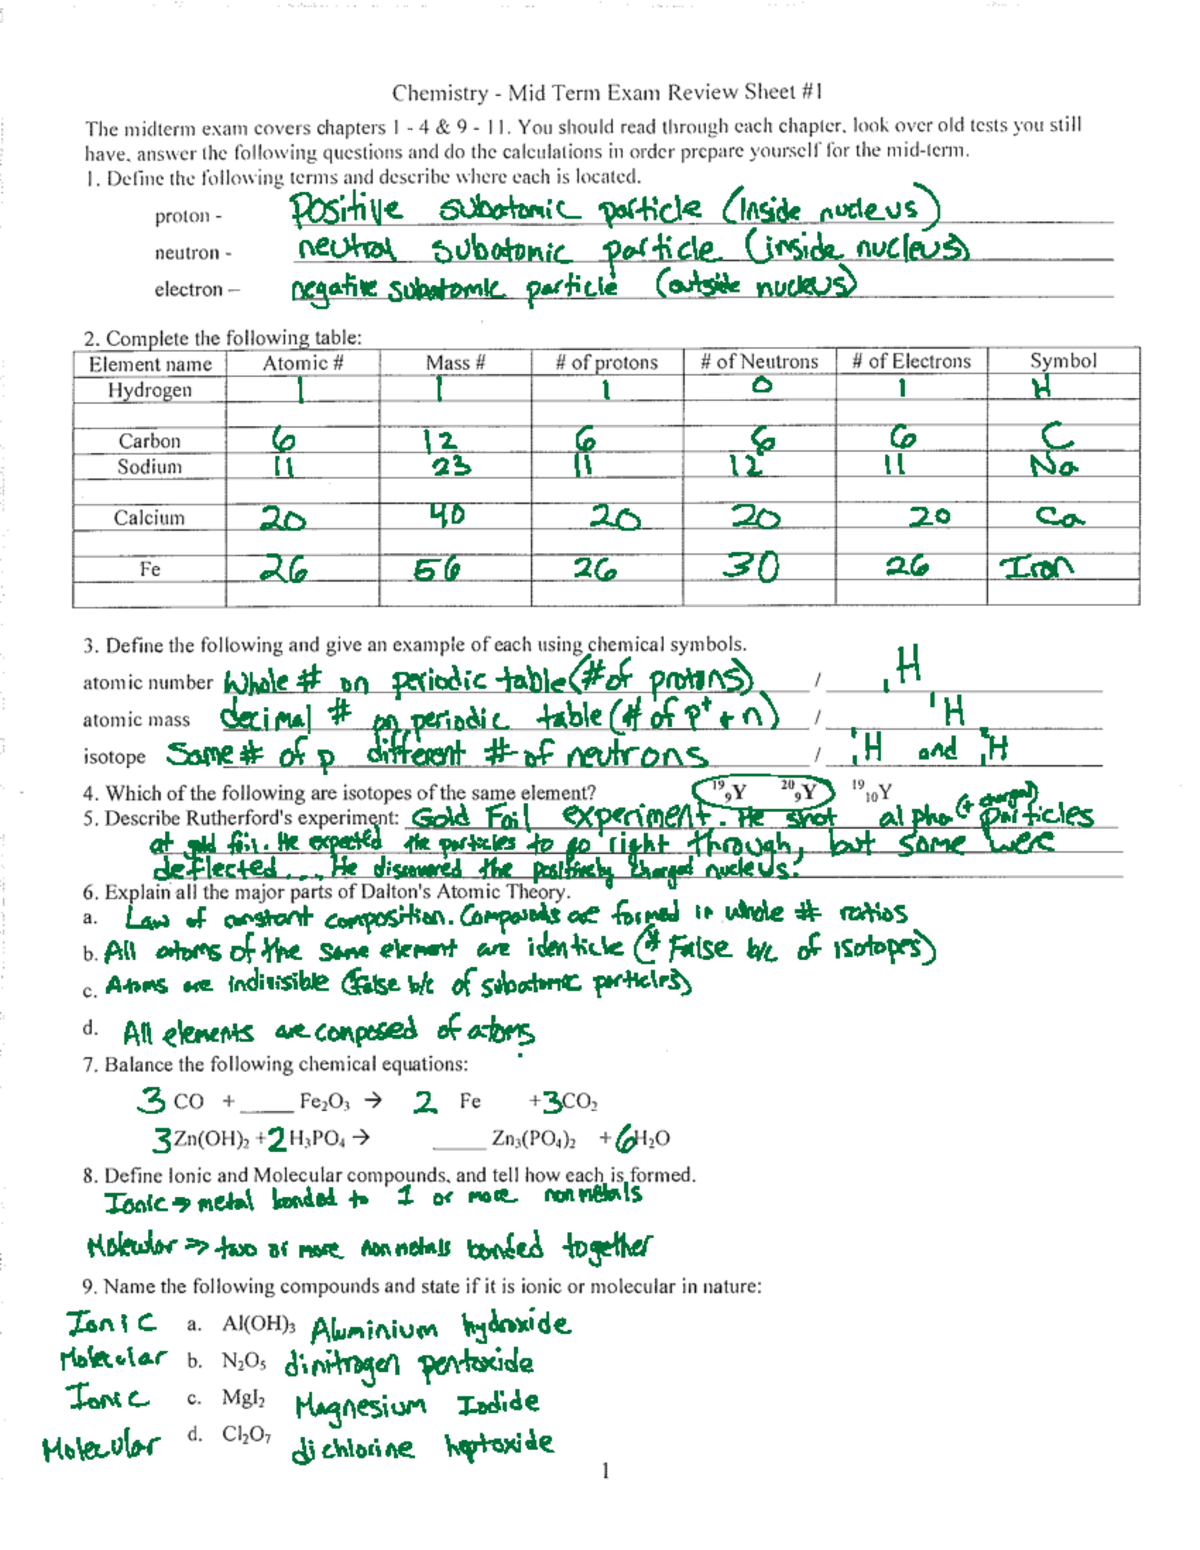 Chemistry - Mid Term Exam Review Sheet #1
The midterm exam covers chapters 1 - 4 & 9 - 11. You should read through each chapter, look over old tests you still
have, answer the following questions and do the calculations in order prepare yourself for the mid-term.
1. Define the following terms and describe where each is located.
proton - Positive subatomic particle (Inside nucleus)
neutron - neutral subatomic particle (inside nucleus)
electron – negative subatomic particle (outside nucleus)
2. Complete the following table:
Element name Atomic # Mass # # of protons # of Neutrons # of Electrons Symbol
Hydrogen 1 1 1 0 1 H
Carbon 6 12 6 6 6 C
Sodium 11 23 11 12 11 Na
Calcium 20 40 20 20 20 Ca
Fe 26 56 26 30 26 Iron
3. Define the following and give an example of each using chemical symbols.
atomic number Whole # on periodic table (# of protons) / ₁H
atomic mass decimal # on periodic table (# of p⁺ + n) / ¹H
isotope Same # of p different # of neutrons / ¹₁H and ²₁H
4. Which of the following are isotopes of the same element? ¹⁹₉Y ²⁰₉Y ¹⁹₁₀Y
5. Describe Rutherford's experiment: Gold Foil experiment. He shot alpha (+ charged) particles
at gold foil. He expected the particles to go right through, but some were
deflected... He discovered the positively charged nucleus.
6. Explain all the major parts of Dalton's Atomic Theory.
a. Law of constant composition. Compounds are formed in whole # ratios
b. All atoms of the same element are identicle (* False b/c of isotopes)
c. Atoms are indivisible (False b/c of subatomic particles)
d. All elements are composed of atoms
7. Balance the following chemical equations:
3 CO + ____ Fe₂O₃ → 2 Fe +3CO₂
3Zn(OH)₂ +2H₃PO₄ → ____ Zn₃(PO₄)₂ +6H₂O
8. Define Ionic and Molecular compounds, and tell how each is formed.
Ionic → metal bonded to 1 or more nonmetals
Molecular ⇒ two or more nonmetals bonded together
9. Name the following compounds and state if it is ionic or molecular in nature:
Ionic a. Al(OH)₃ Aluminium hydroxide
Molecular b. N₂O₅ dinitrogen pentoxide
Ionic c. MgI₂ Magnesium Iodide
Molecular d. Cl₂O₇ dichlorine heptoxide
1